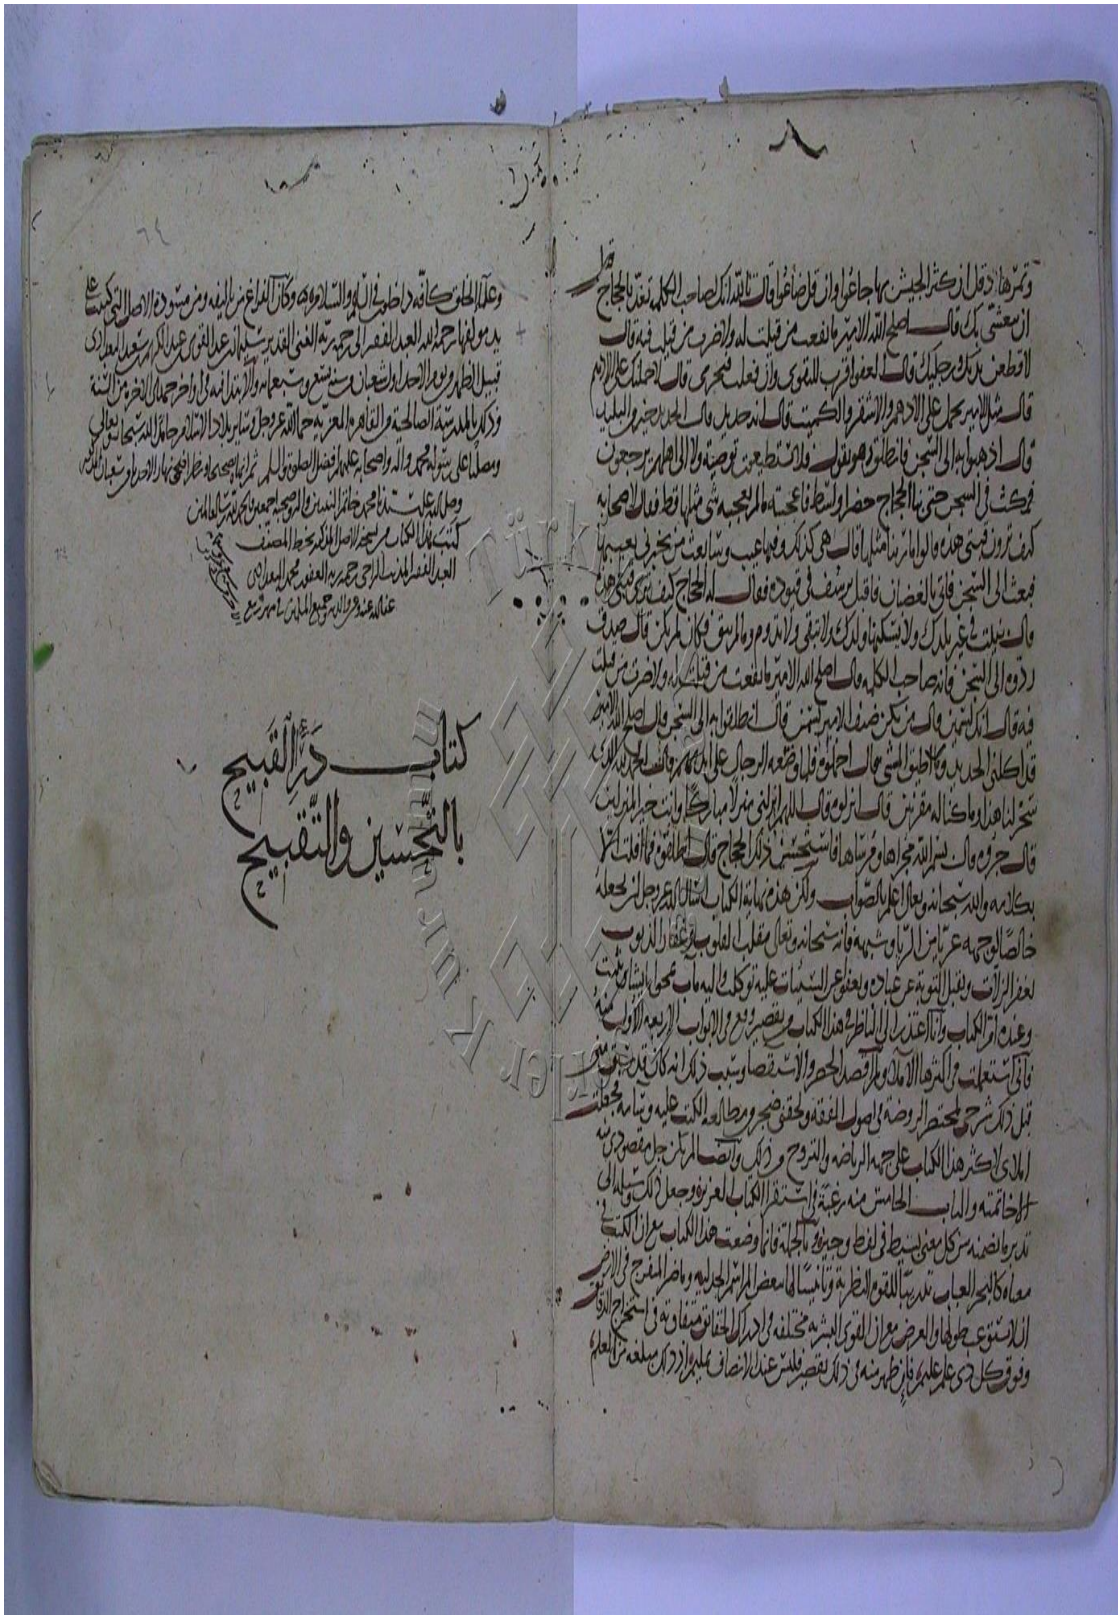 وتمرها دقل ان كثر الجيش بها جاعوا وان قل ضاعوا قال تالله انك لصاحب الكلمه تغد بالحجاج قبل
ان يتعشى بك قال اصلح الله الامير ما نفعت من قيلت له ولا ضرت من قيلت فيه قال
لاقطعن يديك ورجليك قال العفو اقرب للتقوى وان فعلت فتجرى قال لاحملنك على الادهم
قال مثل الامير يحمل على الادهم والاشقر والكميت قال انه حديد قال الحديد خير من البليد
قال اذهبوا به الى السجن فانطلق وهو يقول فلا يستطيعون توصية ولا الى اهلهم يرجعون
فمكث في السجن حتى بنا الحجاج خضرا واسط فاعجبته ما لم يعجبه شى مثلها قط فقال لاصحابه
كيف ترون قبتي هذه قالوا ما راينا مثلها قال هي كذلك وفيها عيب وسابعث من يخبرني بعيبها
فبعث الى السجن فاتي بالغضبان فاقبل يرسف في قيوده فقال له الحجاج كيف ترى قبتي هذه
قال بنيت في غير بلدك ولا يسكنها ولدك ولا تبقى ولا تدوم وما لم يبق فكان لم يكن قال صدق
ردوه الى السجن فانه صاحب الكلمه قال اصلح الله الامير ما نفعت من قيلت له ولا ضرت من قيلت
فيه قال انك لسمين قال من يكن ضيف الامير يسمن قال انطلقوا به الى السجن قال اصلح الله الامير
قد اكلني الحديد وما اطيق المشي قال احملوه فلما وضعه الرجال على اعناقهم قال الحمد لله الذي
سخر لنا هذا وما كنا له مقرنين قال انزلوه قال اللهم انزلني منزلا مباركا وانت خير المنزلين
قال جروه قال بسم الله مجراها ومرساها فاستحسن ذلك الحجاج قال اطلقوه فما افلت الا
بكلامه والله سبحانه وتعالى اعلم بالصواب ولتكن هذه نهاية الكتاب اسال الله عز وجل ان يجعله
خالصا لوجهه عريا من الريا وشبهه فانه سبحانه وتعالى مقلب القلوب وغفار الذنوب
يغفر الزلات ويقبل التوبة عن عباده ويعفوا عن السيئات عليه توكلت واليه ماب يمحوا ما يشا ويثبت
وعنده ام الكتاب وانا اعتذر الى الناظر في هذا الكتاب من تقصير وقع في الابواب الاربعه الاول منه
فاني استعملت في اكثرها الاملا ولم اقصد الحصر والاستقصا وسبب ذلك انه كان قد سبق مني
قبل ذلك شرحي لمختصر الروضة في اصول الفقه ولحقني ضجر من مطالعه الكتب عليه وسآمه فجعلت
املاى لاكثر هذا الكتاب على جهه الرياضه والتروح من ذلك وايضا لم يكن جل مقصودي منه
الا خاتمته والباب الخامس منه رغبة في استقرا الكتاب العزيز وجعل ذلك وسيله الى
تدبر ما تضمنه من كل معنى بسيط في لفظ وجيز وبالجملة فانما وضعت هذا الكتاب مع ان الكتب في
معناه كالبحر العباب تدريبا للقوه النظرية وتانيسا لها ببعض المراسم الجدليه وما ضر المتفرج في الارض
ان لا يستوعب طولها والعرض مع ان القوى البشريه مختلفه في ادراك الحقائق متفاوته في استخراج الدقائق
وفوق كل ذي علم عليم فان ظهر منه في ذلك تقصير فليس عند الانصاف بمليم واذ ذلك مبلغه من العلم
وعلم الخلق كافه داخلون في السلم والسلام وكان الفراغ من تاليفه ومن مسودة الاصل التي كتبت على
يد مولفها رحمه الله العبد الفقير الى رحمه ربه الغني القدير سليمان بن عبد القوى بن عبد الكريم بن سعيد البغدادي
قبيل الظهر من يوم الاحد اول شعبان وسبعمايه والابتدا فيه في اواخر جمادى الاخرة من السنة
وذلك بالمدرسة الصالحية من القاهره المعزيه حماها الله عز وجل وساير بلاد الاسلام حامدا لله سبحانه وتعالى
ومصليا على رسوله محمد واله واصحابه عليهم افضل الصلوة والسلم
وصلى الله على سيدنا محمد خاتم النبيين واله وصحبه اجمعين والحمد لله رب العالمين
كتبت هذا الكتاب من نسخة الاصل المذكوره بخط المصنف
العبد الفقير المذنب الراجي رحمه ربه العفو محمد البغدادي
عفا الله عنه وعن والديه وجميع المسلمين
كتاب درء القبيح
بالتحسين والتقبيح